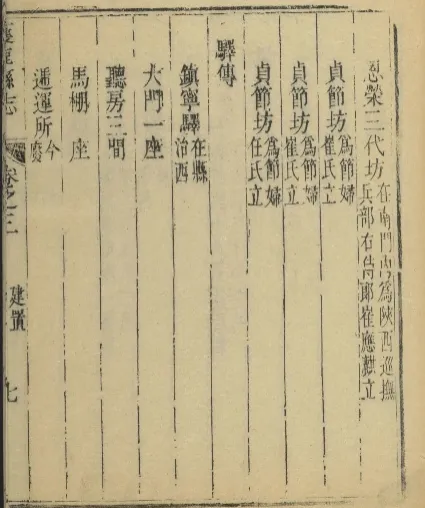 恩榮三代坊 在南門內爲陝西巡撫
兵部右侍郎崔應麒立
貞節坊 爲節婦
崔氏立
貞節坊 爲節婦
崔氏立
貞節坊 爲節婦
任氏立
驛傳
鎮寧驛 在縣
治西
大門一座
聽房三間
馬棚 座
遞運所 今
廢
縣志 卷之 建置 七